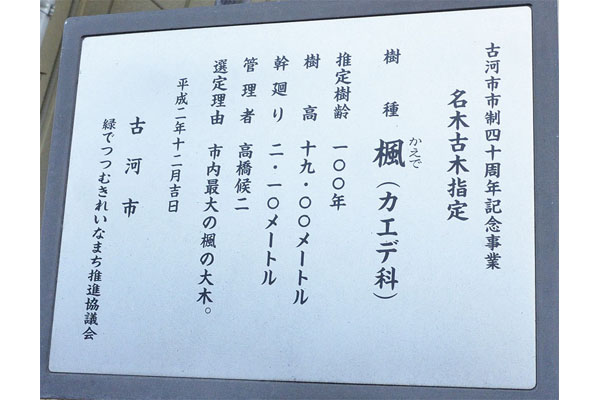 古河市市制四十周年記念事業
名木古木指定
樹種 楓(カエデ科)
かえで
推定樹齢 一〇〇年
樹高 十九・〇〇メートル
幹廻り 二・一〇メートル
管理者 高橋候二
選定理由 市内最大の楓の大木。
平成二年十二月吉日
古河市
緑でつつむきれいなまち推進協議会